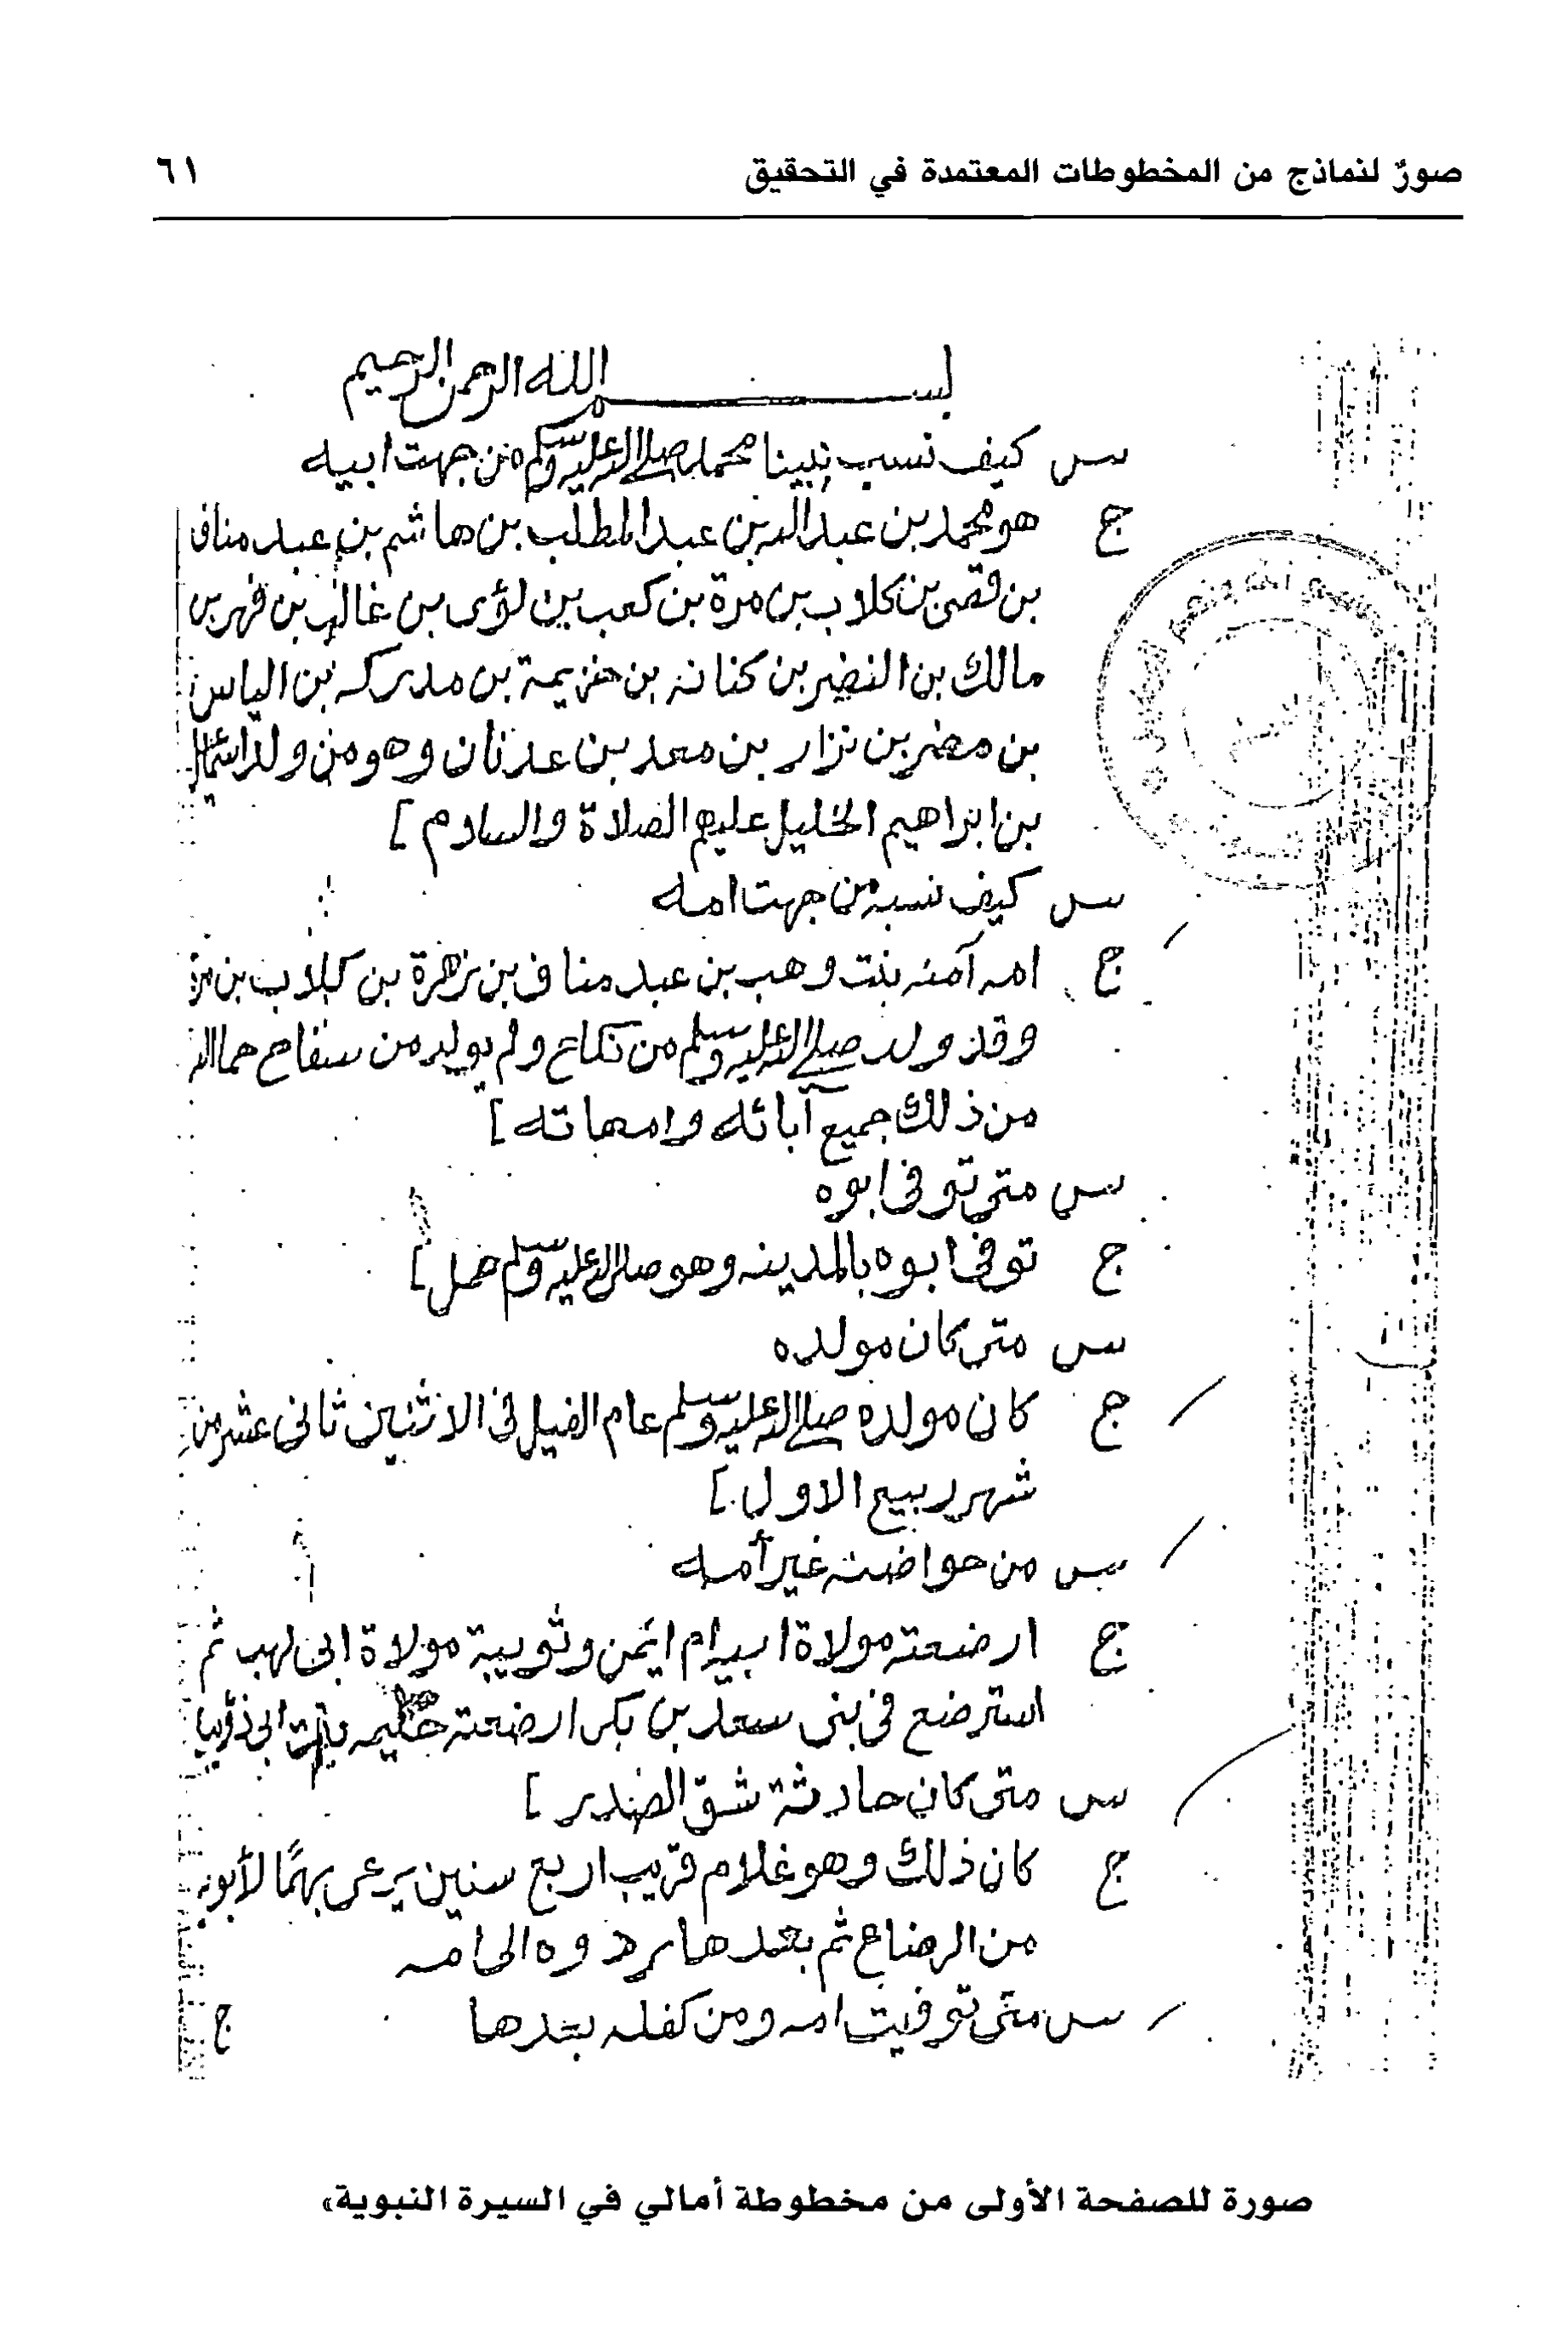 صورٌ لنماذج من المخطوطات المعتمدة في التحقيق
٦١
بسم الله الرحمن الرحيم
س كيف نسب نبينا محمد صلى الله عليه وسلم من جهت ابيه
ج هو محمد بن عبد الله بن عبد المطلب بن هاشم بن عبد مناف
بن قصى بن كلاب بن مرة بن كعب بن لؤى بن غالب بن فهر بن
مالك بن النضير بن كنانه بن خزيمة بن مدركه بن الياس
بن مضر بن نزار بن معد بن عدنان وهو من ولد اسماعيل
بن ابراهيم الخليل عليهم الصلاة والسلام ]
س كيف نسبه من جهت امه
ج امه آمنه بنت وهب بن عبد مناف بن زهرة بن كلاب بن مرة
وقد ولد صلى الله عليه وسلم من نكاح ولم يولد من سفاح حما الله
من ذلك جميع آبائه وامهاته ]
س متى توفى ابوه
ج توفى ابوه بالمدينه وهو صلى الله عليه وسلم حمل ]
س متى كان مولده
ج كان مولده صلى الله عليه وسلم عام الفيل فى الاثنين ثانى عشر من
شهر ربيع الاول . ]
س من حواضنه غير أمه
ج ارضعته مولاة ابيه ام ايمن وثويبة مولاة ابى لهب ثم
استرضع فى بنى سعد بن بكر ارضعته حليمه بنت ابى ذؤيب
س متى كان حادثة شق الصدر ]
ج كان ذلك وهو غلام قريب اربع سنين يرعى بهمًا لأبويه
من الرضاع ثم بعدها ردوه الى امه
س متى توفيت امه ومن كفله بعدها
ج
صورة للصفحة الأولى من مخطوطة أمالي في السيرة النبوية»